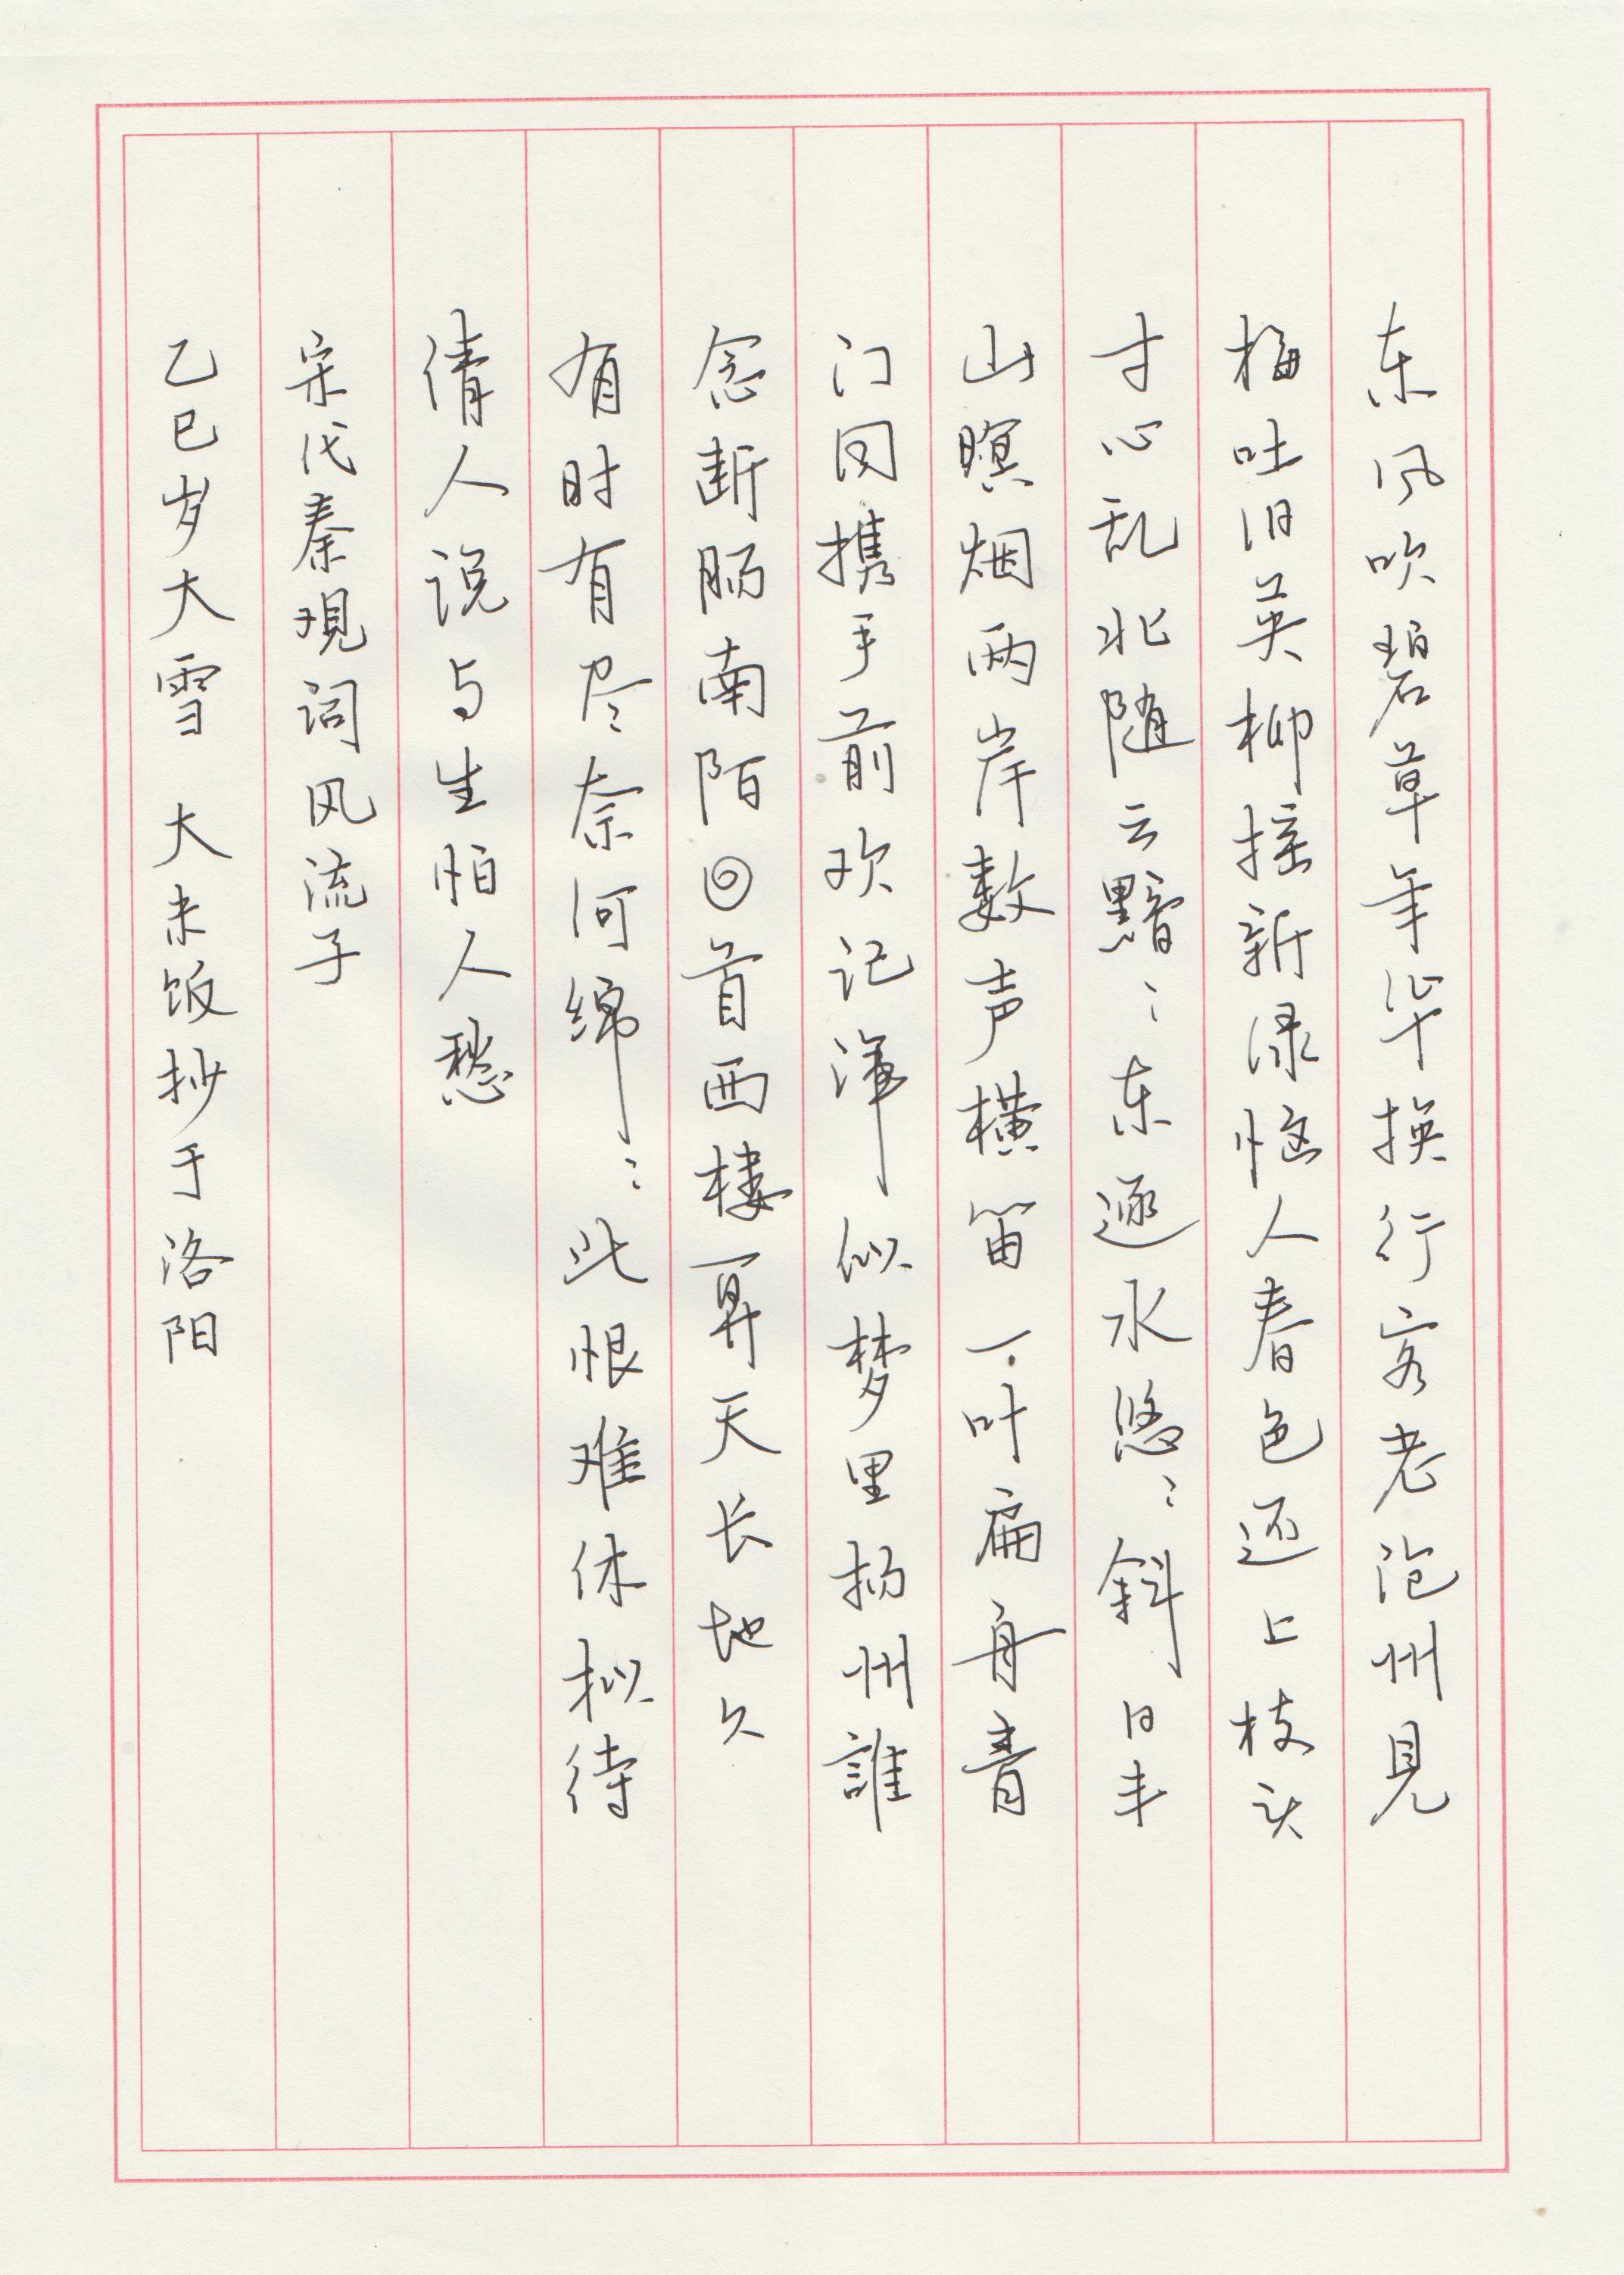 东风吹碧草年华换行客老沧州見
梅吐旧英柳摇新绿恼人春色还上枝头
寸心乱北随云黯〻东逐水悠〻斜日半
山瞑烟两岸数声横笛一叶扁舟青
门同携手前欢记浑似梦里扬州誰
念断肠南陌回首西楼算天长地久
有时有尽奈何绵〻此恨难休拟待
倩人说与生怕人愁
宋代秦観词风流子
乙巳岁大雪 大米饭抄于洛阳